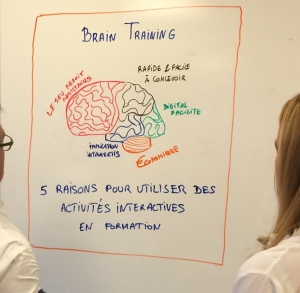 BRAIN TRAINING
RAPIDE & FACILE
À CONCEVOIR
LE JEU RÉDUIT
RÉSISTANCES
DIGITAL
FACILITE
INTERACTIFS
ÉCONOMIQUE
5 RAISONS POUR UTILISER DES
ACTIVITÉS INTERACTIVES
EN FORMATION